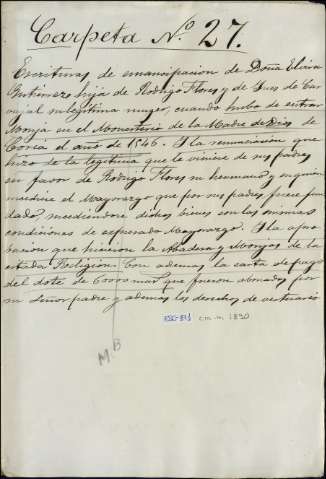 Carpeta Nº 27.
Escrituras de emancipacion de Doña Elvira
Gutierrez hija de Rodrigo Flores y de Ines de Car-
vajal su legitima muger, cuando hubo de entrar
Monja en el Monasterio de la Madre de Dios de
Coria el año de 1546. Y la renunciación que
hizo de la legitima que le viniese de sus padres
en favor de Rodrigo Flores su hermano y en quien
sucediese el Mayorazgo que por sus padres fuese fun-
dado, sucediendole dichos bienes con las mismas
condiciones de espresado Mayorazgo. Y la apro-
bacion que hicieron la Abadesa y Monjas de la
citada Religion. Con ademas la carta de pago
del dote de 60000 mas que fueron abonados por
su señor padre y ademas los derechos de vestuario
ESC-831 c.m.n. 1890
M.B